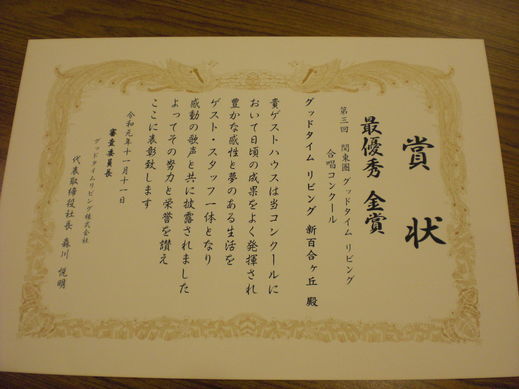 賞状
最優秀 金賞
第三回 関東圏 グッドタイム リビング
合唱コンクール
グッドタイム リビング 新百合ヶ丘 殿
貴ゲストハウスは当コンクールに
おいて日頃の成果をよく発揮され
豊かな感性と夢のある生活を
ゲスト・スタッフ一体となり
感動の歌声と共に披露されました
よってその努力と栄誉を讃え
ここに表彰致します
令和元年十一月十一日
審査委員長
グッドタイムリビング株式会社
代表取締役社長 森川 悦明